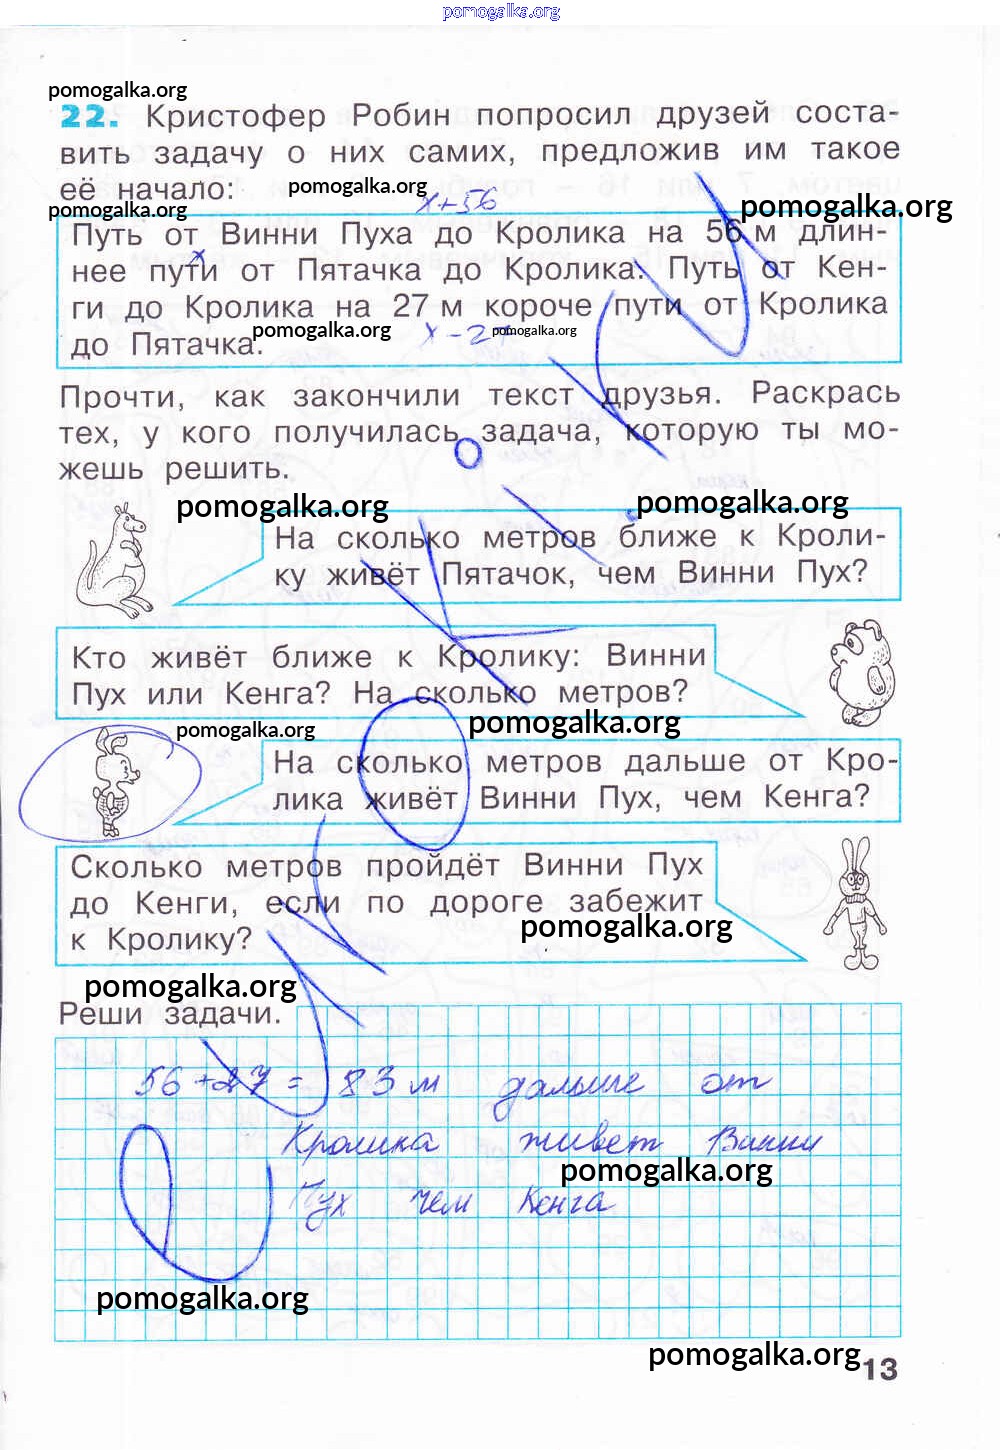 pomogalka.org
pomogalka.org
22. Кристофер Робин попросил друзей соста-
вить задачу о них самих, предложив им такое
её начало:
pomogalka.org
x+56
pomogalka.org
pomogalka.org
Путь от Винни Пуха до Кролика на 56 м длин-
x
нее пути от Пятачка до Кролика. Путь от Кен-
ги до Кролика на 27 м короче пути от Кролика
до Пятачка.
pomogalka.org
x-27
pomogalka.org
Прочти, как закончили текст друзья. Раскрась
тех, у кого получилась задача, которую ты мо-
жешь решить.
pomogalka.org
pomogalka.org
На сколько метров ближе к Кроли-
ку живёт Пятачок, чем Винни Пух?
Кто живёт ближе к Кролику: Винни
Пух или Кенга? На сколько метров?
pomogalka.org
pomogalka.org
На сколько метров дальше от Кро-
лика живёт Винни Пух, чем Кенга?
Сколько метров пройдёт Винни Пух
до Кенги, если по дороге забежит
к Кролику?
pomogalka.org
pomogalka.org
Реши задачи.
56+27= 83 м дальше от
Кролика живет Винни
pomogalka.org
Пух чем Кенга
pomogalka.org
pomogalka.org
13